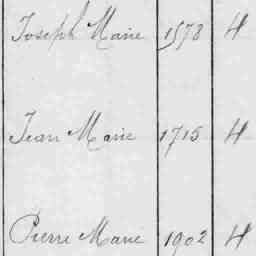 Joseph Marie 1578 H
Jean Marie 1715 H
Pierre Marie 1902 H